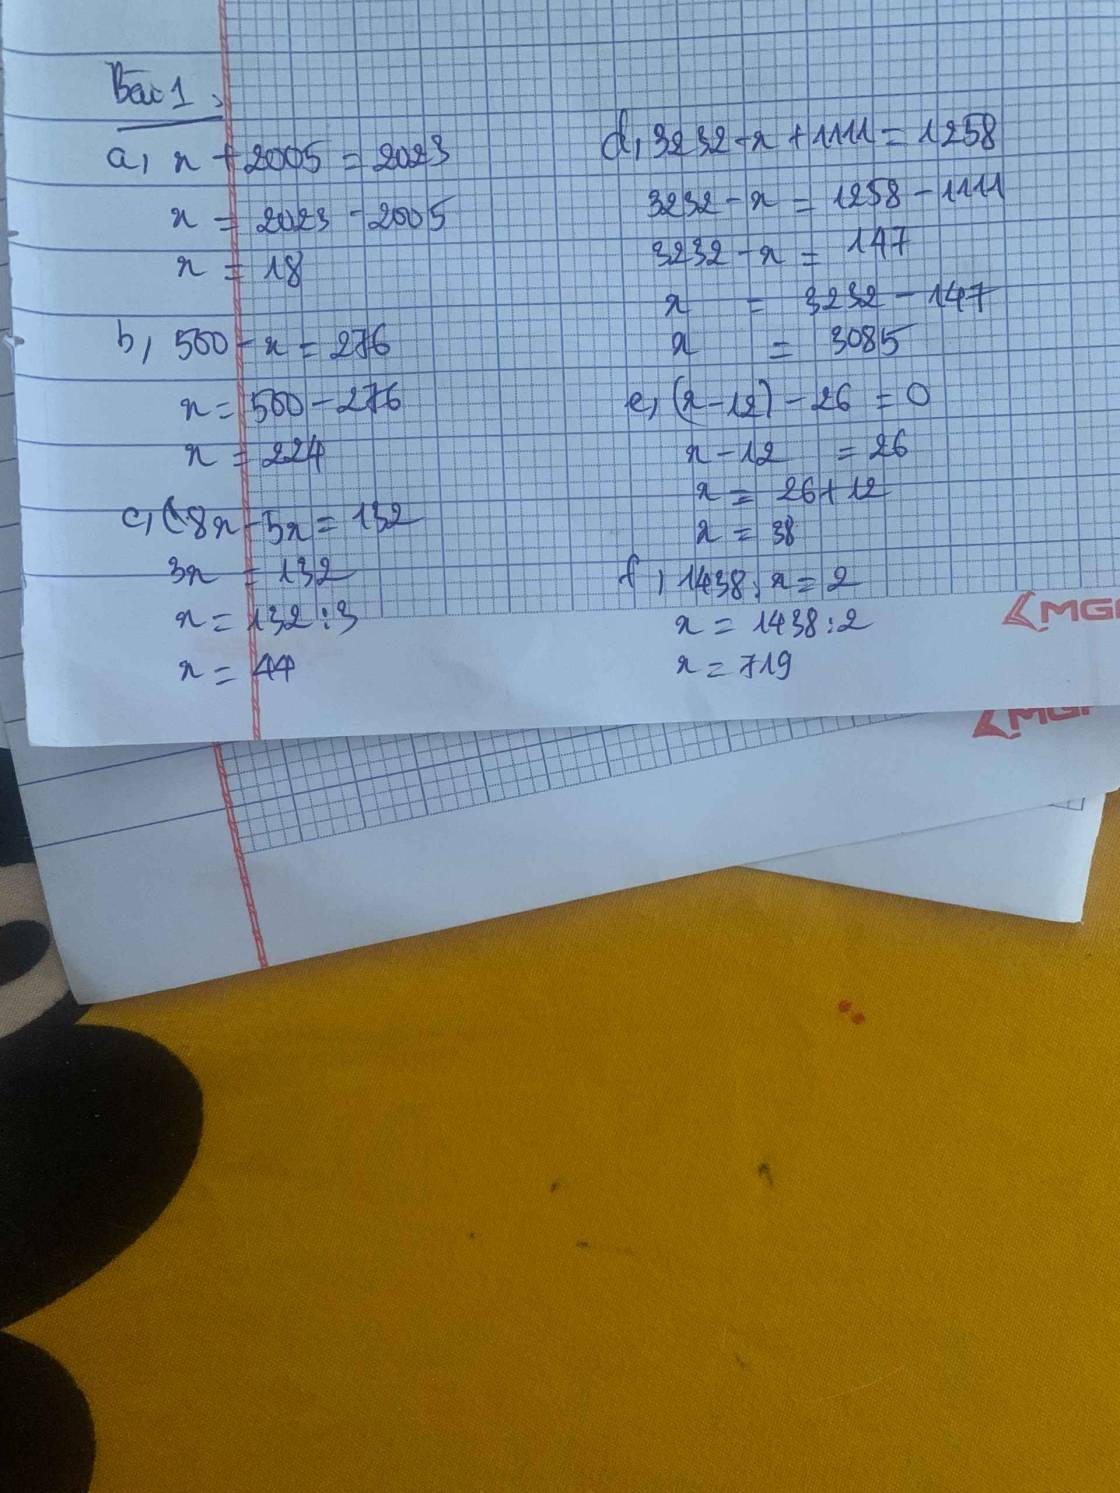 Bài 1,
a, x + 2005 = 2023
x = 2023 - 2005
x = 18
b, 500 - x = 276
x = 500 - 276
x = 224
c, 8x - 5x = 132
3x = 132
x = 132 : 3
x = 44
d, 3232 - x + 1111 = 1258
3232 - x = 1258 - 1111
3232 - x = 147
x = 3232 - 147
x = 3085
e, (x - 12) - 26 = 0
x - 12 = 26
x = 26 + 12
x = 38
f, 1438 : x = 2
x = 1438 : 2
x = 719
MG
MG